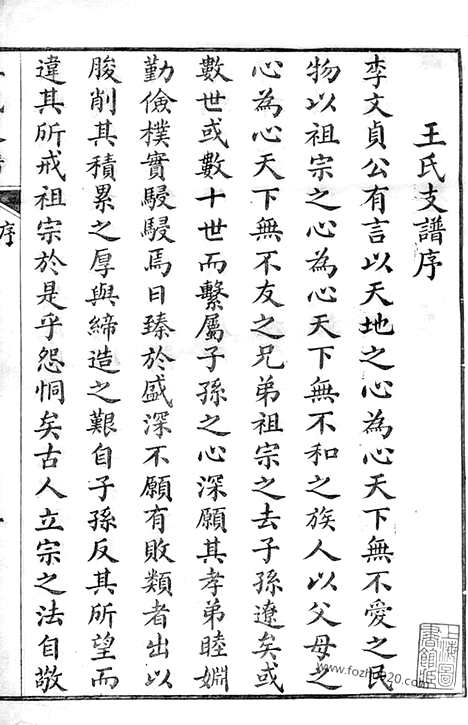 王氏支譜序
李文貞公有言以天地之心為心天下無不愛之民
物以祖宗之心為心天下無不和之族人以父母之
心為心天下無不友之兄弟祖宗之去子孫遼矣或
數世或數十世而繫屬子孫之心深願其孝弟睦婣
勤儉樸實駸駸焉日臻於盛深不願有敗類者出以
朘削其積累之厚與締造之艱自子孫反其所望而
違其所戒祖宗於是乎怨恫矣古人立宗之法自敬
序
上海圖
書館藏
www.fozhu920.com